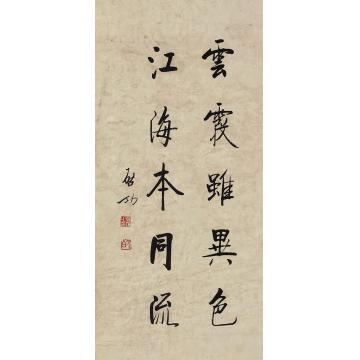 雲霞雖異色
江海本同流
啓功